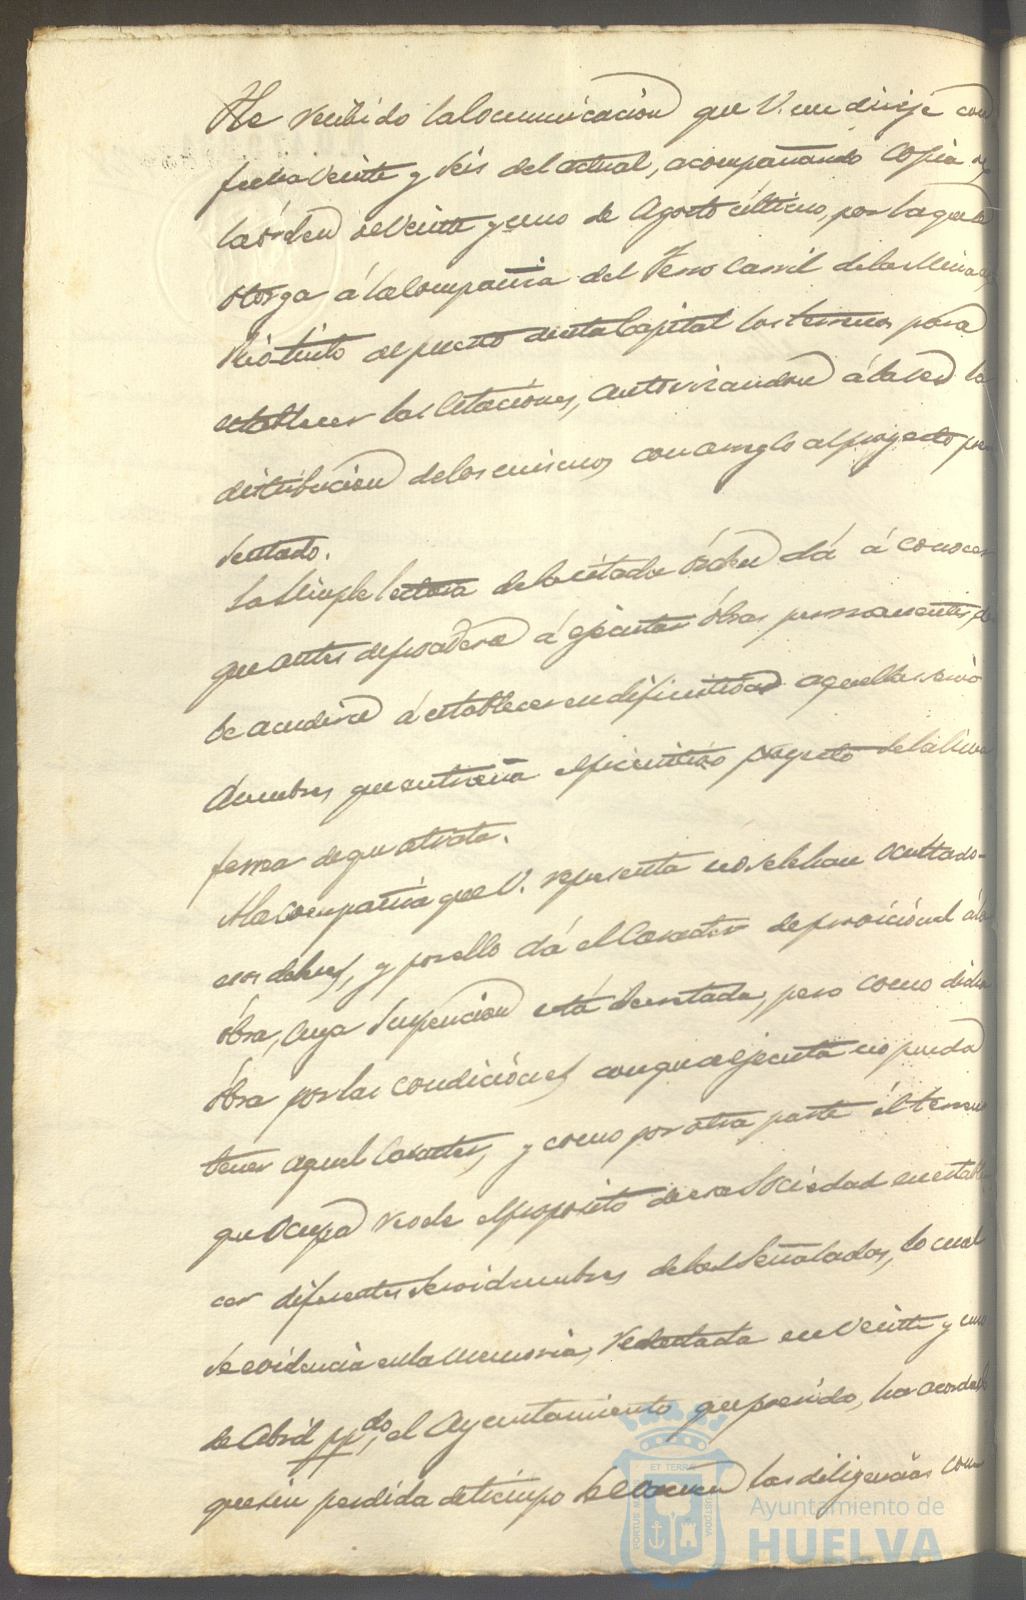 He recibido la Comunicacion que V. me dirije con
fecha Veinte y seis del actual, acompañando copia de
la órden de Veinte y uno de Agosto último, por la que se
otorga á la Compañia del Ferro Carril de las Minas de
Rio-tinto al puerto de esta Capital los terrenos para
establecer las Estaciones, autorizandose á la vez la
distribucion de los mismos, con arreglo al proyecto pre
sentado.
La simple lectura de la citada órden dá á conocer
que antes de procederse á ejecutar óbras permanentes, de
be acudirse á establecer en definitiva aquellas servi
dumbres que entraña el primitivo proyecto de la linea
ferrea de que se trata.
A la Compañia que V. representa no se le han ocultado
esos deberes, y por ello dá el Caracter de provicional á la
óbra, cuya suspencion está decretada, pero como dicha
óbra por las condiciónes con que se ejecuta no pueda
tener aquel Caracter, y como por otra parte él terreno
que ocupa el proposito de esa Sociedad en estable
cer diferentes servidumbres de las señaladas, lo cual
se evidencia en la memoria, redactada en Veinte y uno
de Abril ppdo, el Ayuntamiento que presido, ha acordado
que sin perdida de tiempo se las diligencias con
Ayuntamiento de
HUELVA
PORTUS MARIS ET TERRAE CUSTODIA